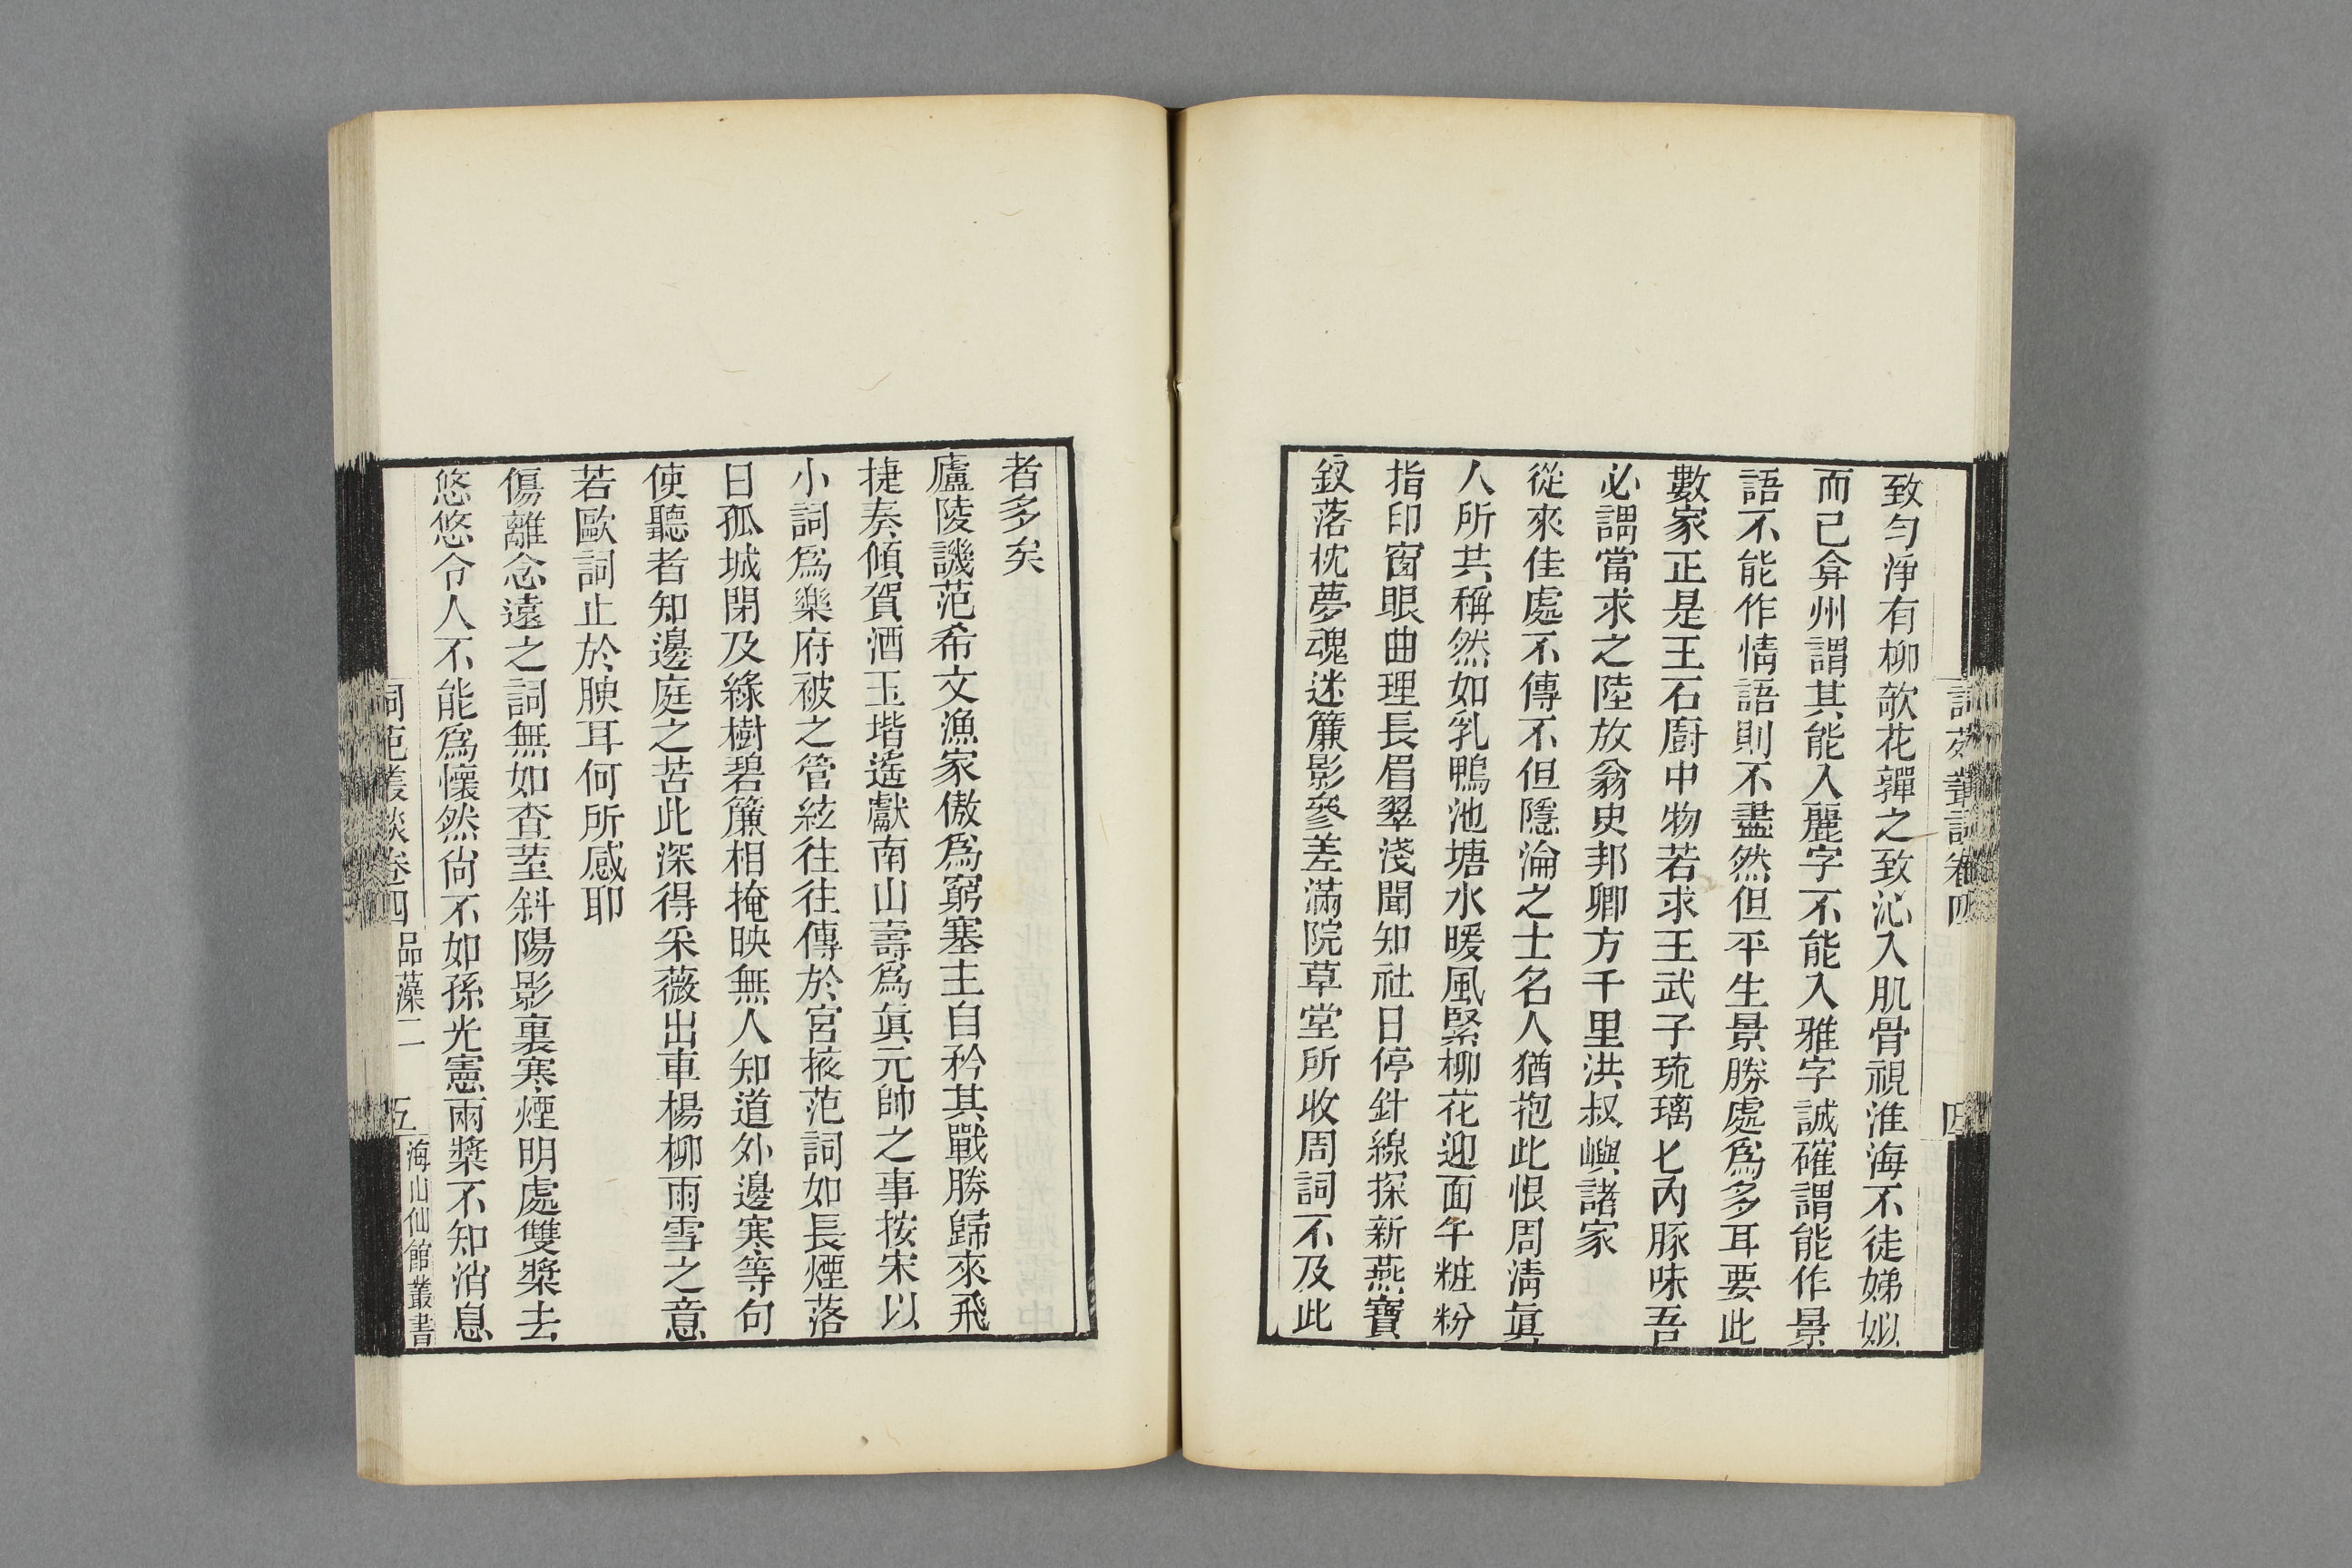 詞苑叢談卷四
四
致勻淨有柳欹花嚲之致沁入肌骨視淮海不徒娣姒
而已弇州謂其能入麗字不能入雅字誠確謂能作景
語不能作情語則不盡然但平生景勝處為多耳要此
數家正是王石廚中物若求王武子琉璃匕內豚味吾
必謂當求之陸放翁史邦卿方千里洪叔嶼諸家
從來佳處不傳不但隱淪之士名人猶抱此恨周清眞
人所共稱然如乳鴨池塘水暖風緊柳花迎面午粧粉
指印窗眼曲理長眉翠淺聞知社日停針線探新燕寶
釵落枕夢魂迷簾影參差滿院草堂所收周詞不及此
者多矣
廬陵譏范希文漁家傲為窮塞主自矜其戰勝歸來飛
捷奏傾賀酒玉堦遙獻南山壽為眞元帥之事按宋以
小詞為樂府被之管絃往往傳於宮掖范詞如長煙落
日孤城閉及綠樹碧簾相掩映無人知道外邊寒等句
使聽者知邊庭之苦此深得采薇出車楊柳雨雪之意
若歐詞止於腴耳何所感耶
傷離念遠之詞無如查荎斜陽影裏寒煙明處雙槳去
悠悠令人不能為懷然尙不如孫光憲兩槳不知消息
詞苑叢談卷四 品藻二 五 海山仙館叢書